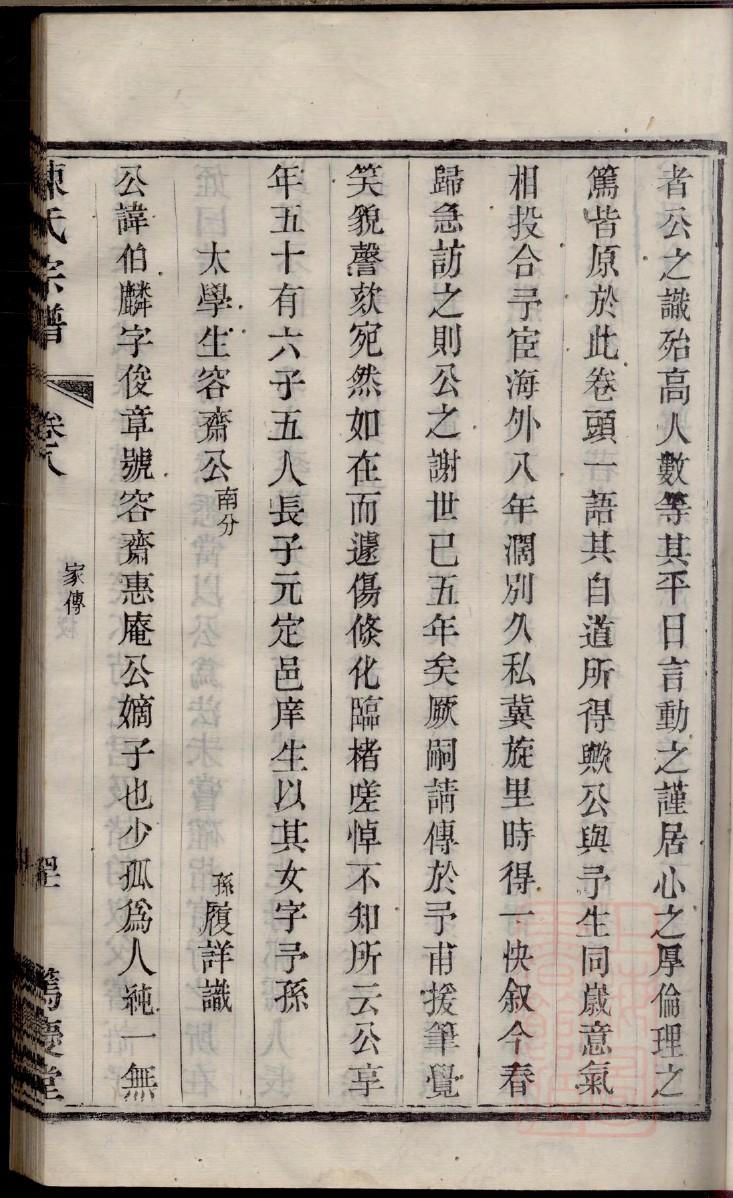 者公之識殆高人數等其平日言動之謹居心之厚倫理之
篤皆原於此卷頭一語其自道所得歟公與予生同歲意氣
相投合予宦海外八年濶別久私冀旋里時得一快叙今春
歸急訪之則公之謝世已五年矣厥嗣請傳於予甫援筆覺
笑貌謦欬宛然如在而遽傷倐化臨楮嗟悼不知所云公享
年五十有六子五人長子元定邑庠生以其女字予孫
太學生容齋公南分　孫履詳識
公諱伯麟字俊章號容齋惠庵公嫡子也少孤爲人純一無
陳氏宗譜　卷八　家傳　篤慶堂